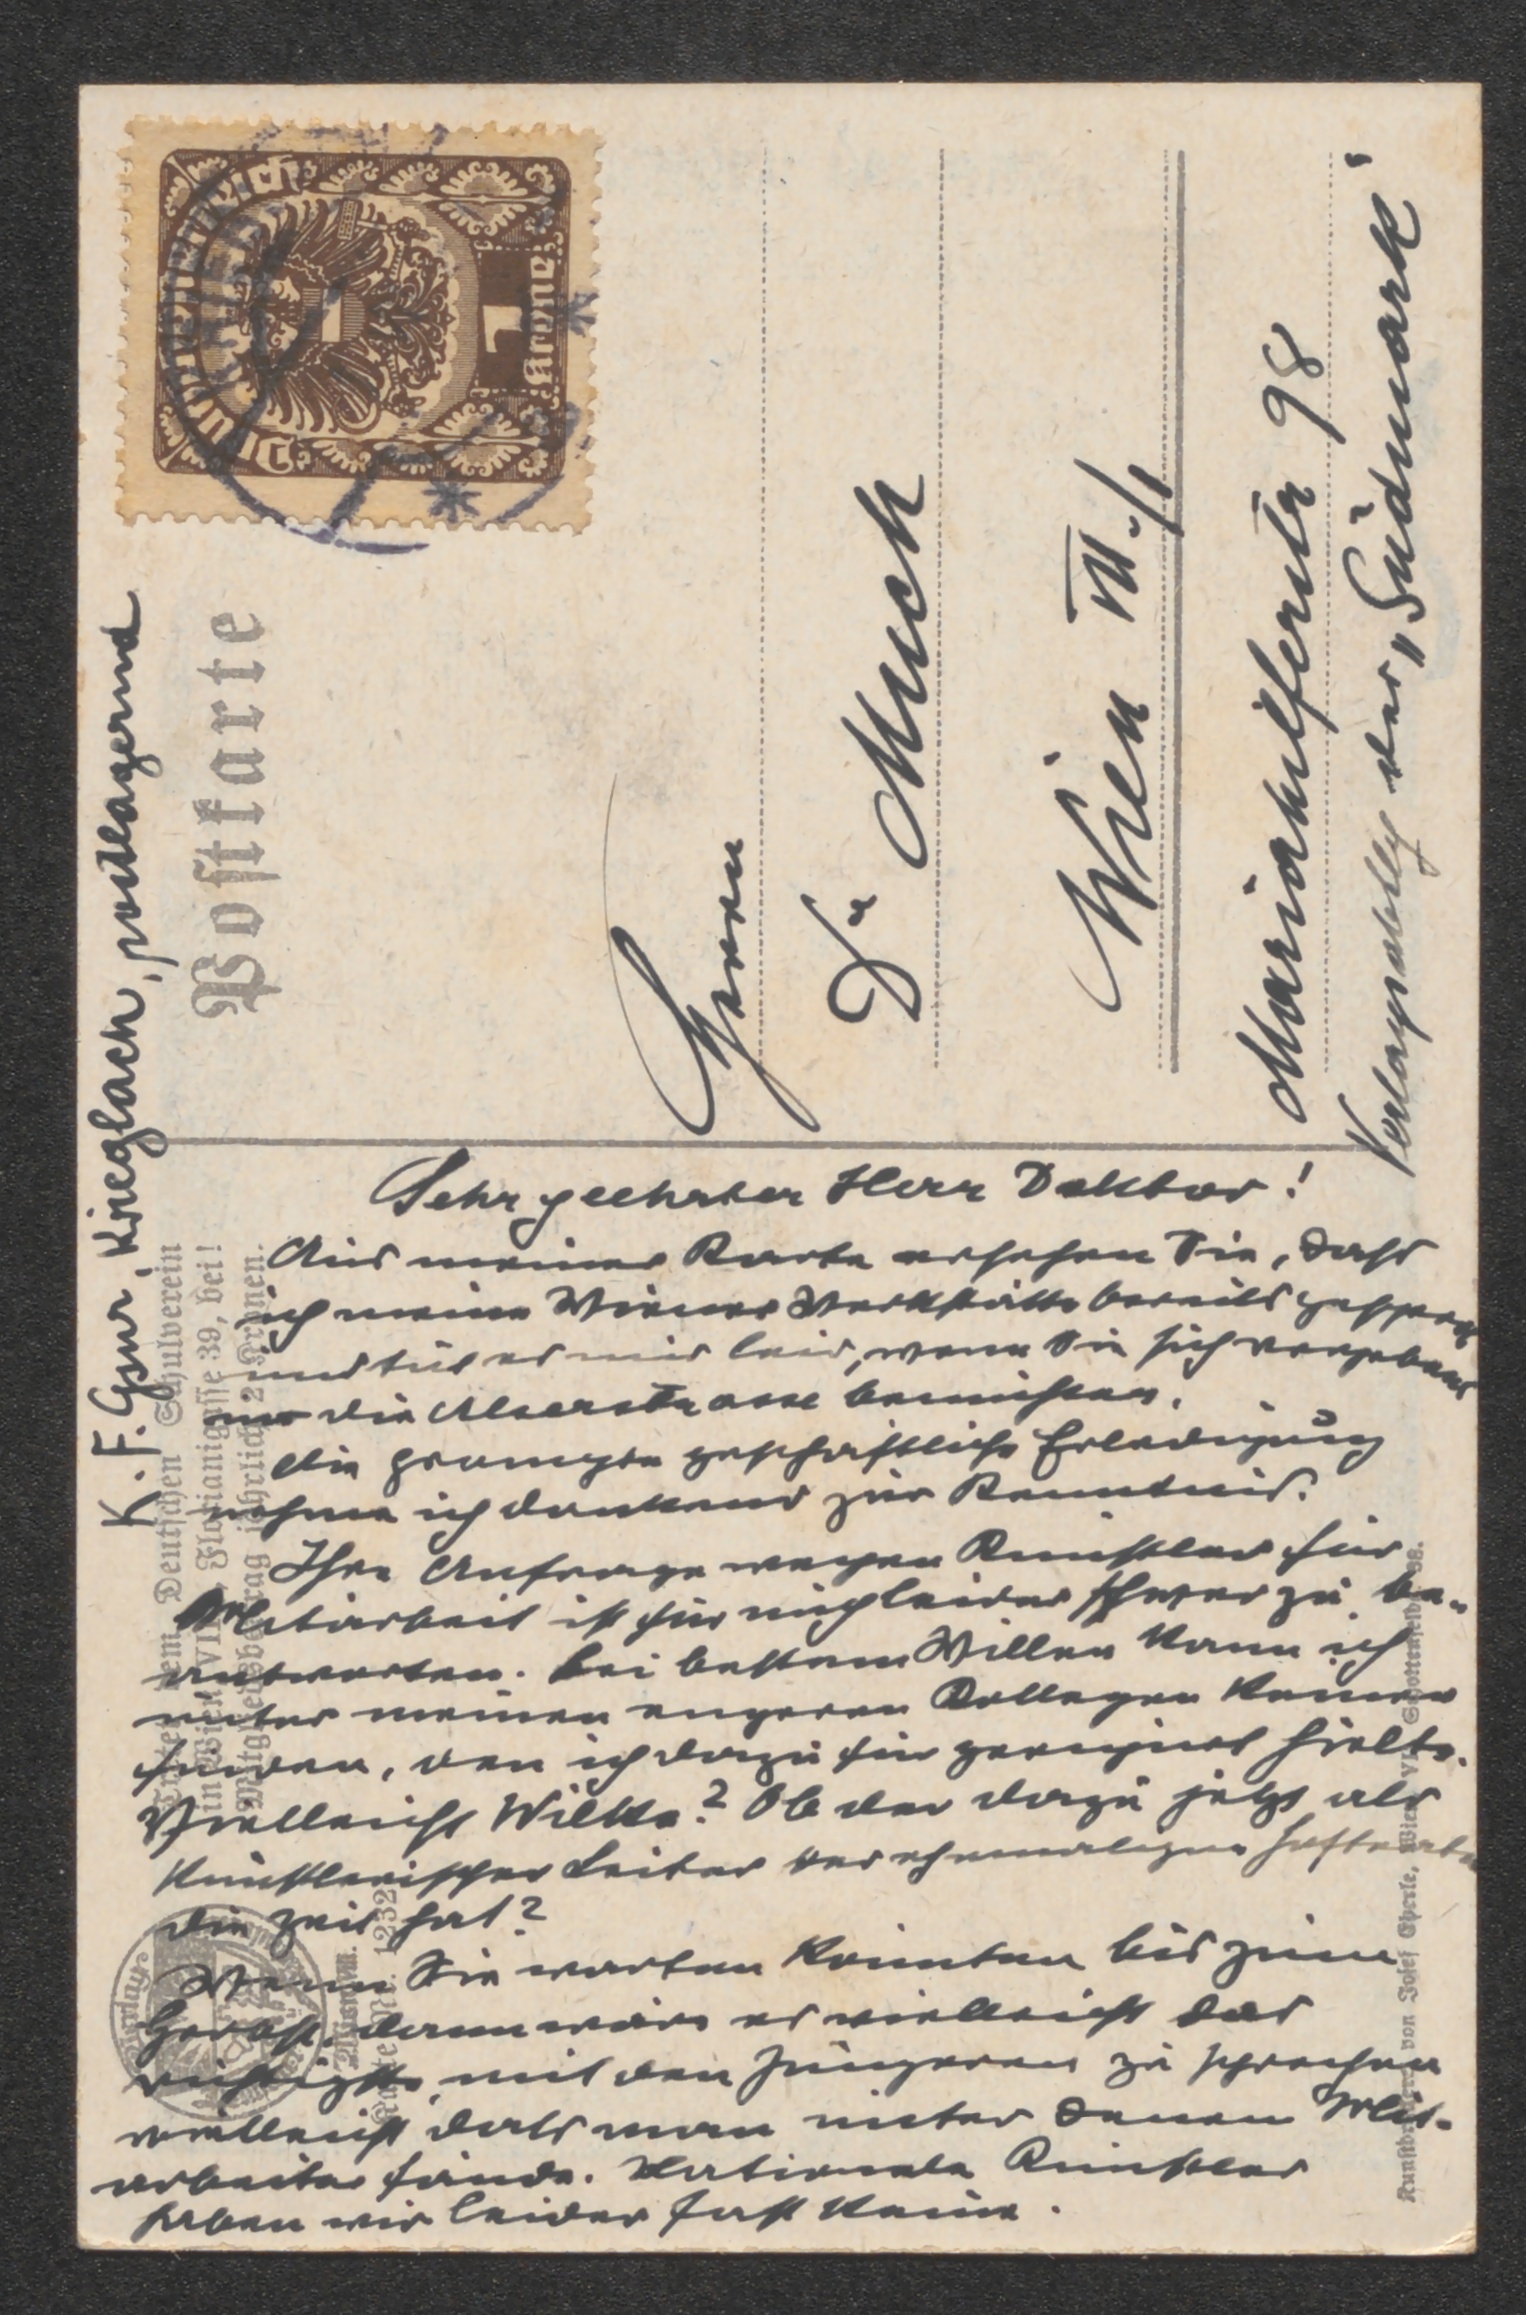 K. F. Gsur, Krieglach, postlagernd
Postkarte
Deutschösterreich
1
Krone
Herrn
Dr Much
Wien VII./1
Mariahilferstr 98
der „Südmark"
Tretet dem Deutschen Schulverein
in Wien, VIII. Florianigasse 39, bei!
Mitgliedsbeitrag jährlich 2 Kronen.
Karte Nr. 1232
Sehr geehrter Herr Doktor!
Aus meiner Karte ersehen Sie, dass
ich meine Wiener Werkstätte bereits gesperrt
und tut es mir leid, wenn Sie sich vergebens
in die Alserstrasse bemühten.
Die prompte geschäftliche Erledigung
nehme ich dankend zur Kenntnis.
Ihre Anfrage wegen Künstler für
Mitarbeit ist für mich leider schwer zu be-
antworten. Bei bestem Willen kann ich
unter meinen engeren Kollegen keinen
finden, den ich dazu für geeignet hielte.
Vielleicht Wilke? Ob der dazu jetzt als
künstlerischer Leiter der ehemaligen
die Zeit hat?
Wenn Sie warten könnten bis zum
Herbst, dann wäre es vielleicht das
richtigste, mit den Jüngeren zu sprechen
vielleicht dass man unter denen Mit-
arbeiter fände. Nationale Künstler
haben wir leider fast keine.
Kunstdruck von Josef Eberle, Wien VII. Schottenfeldg.